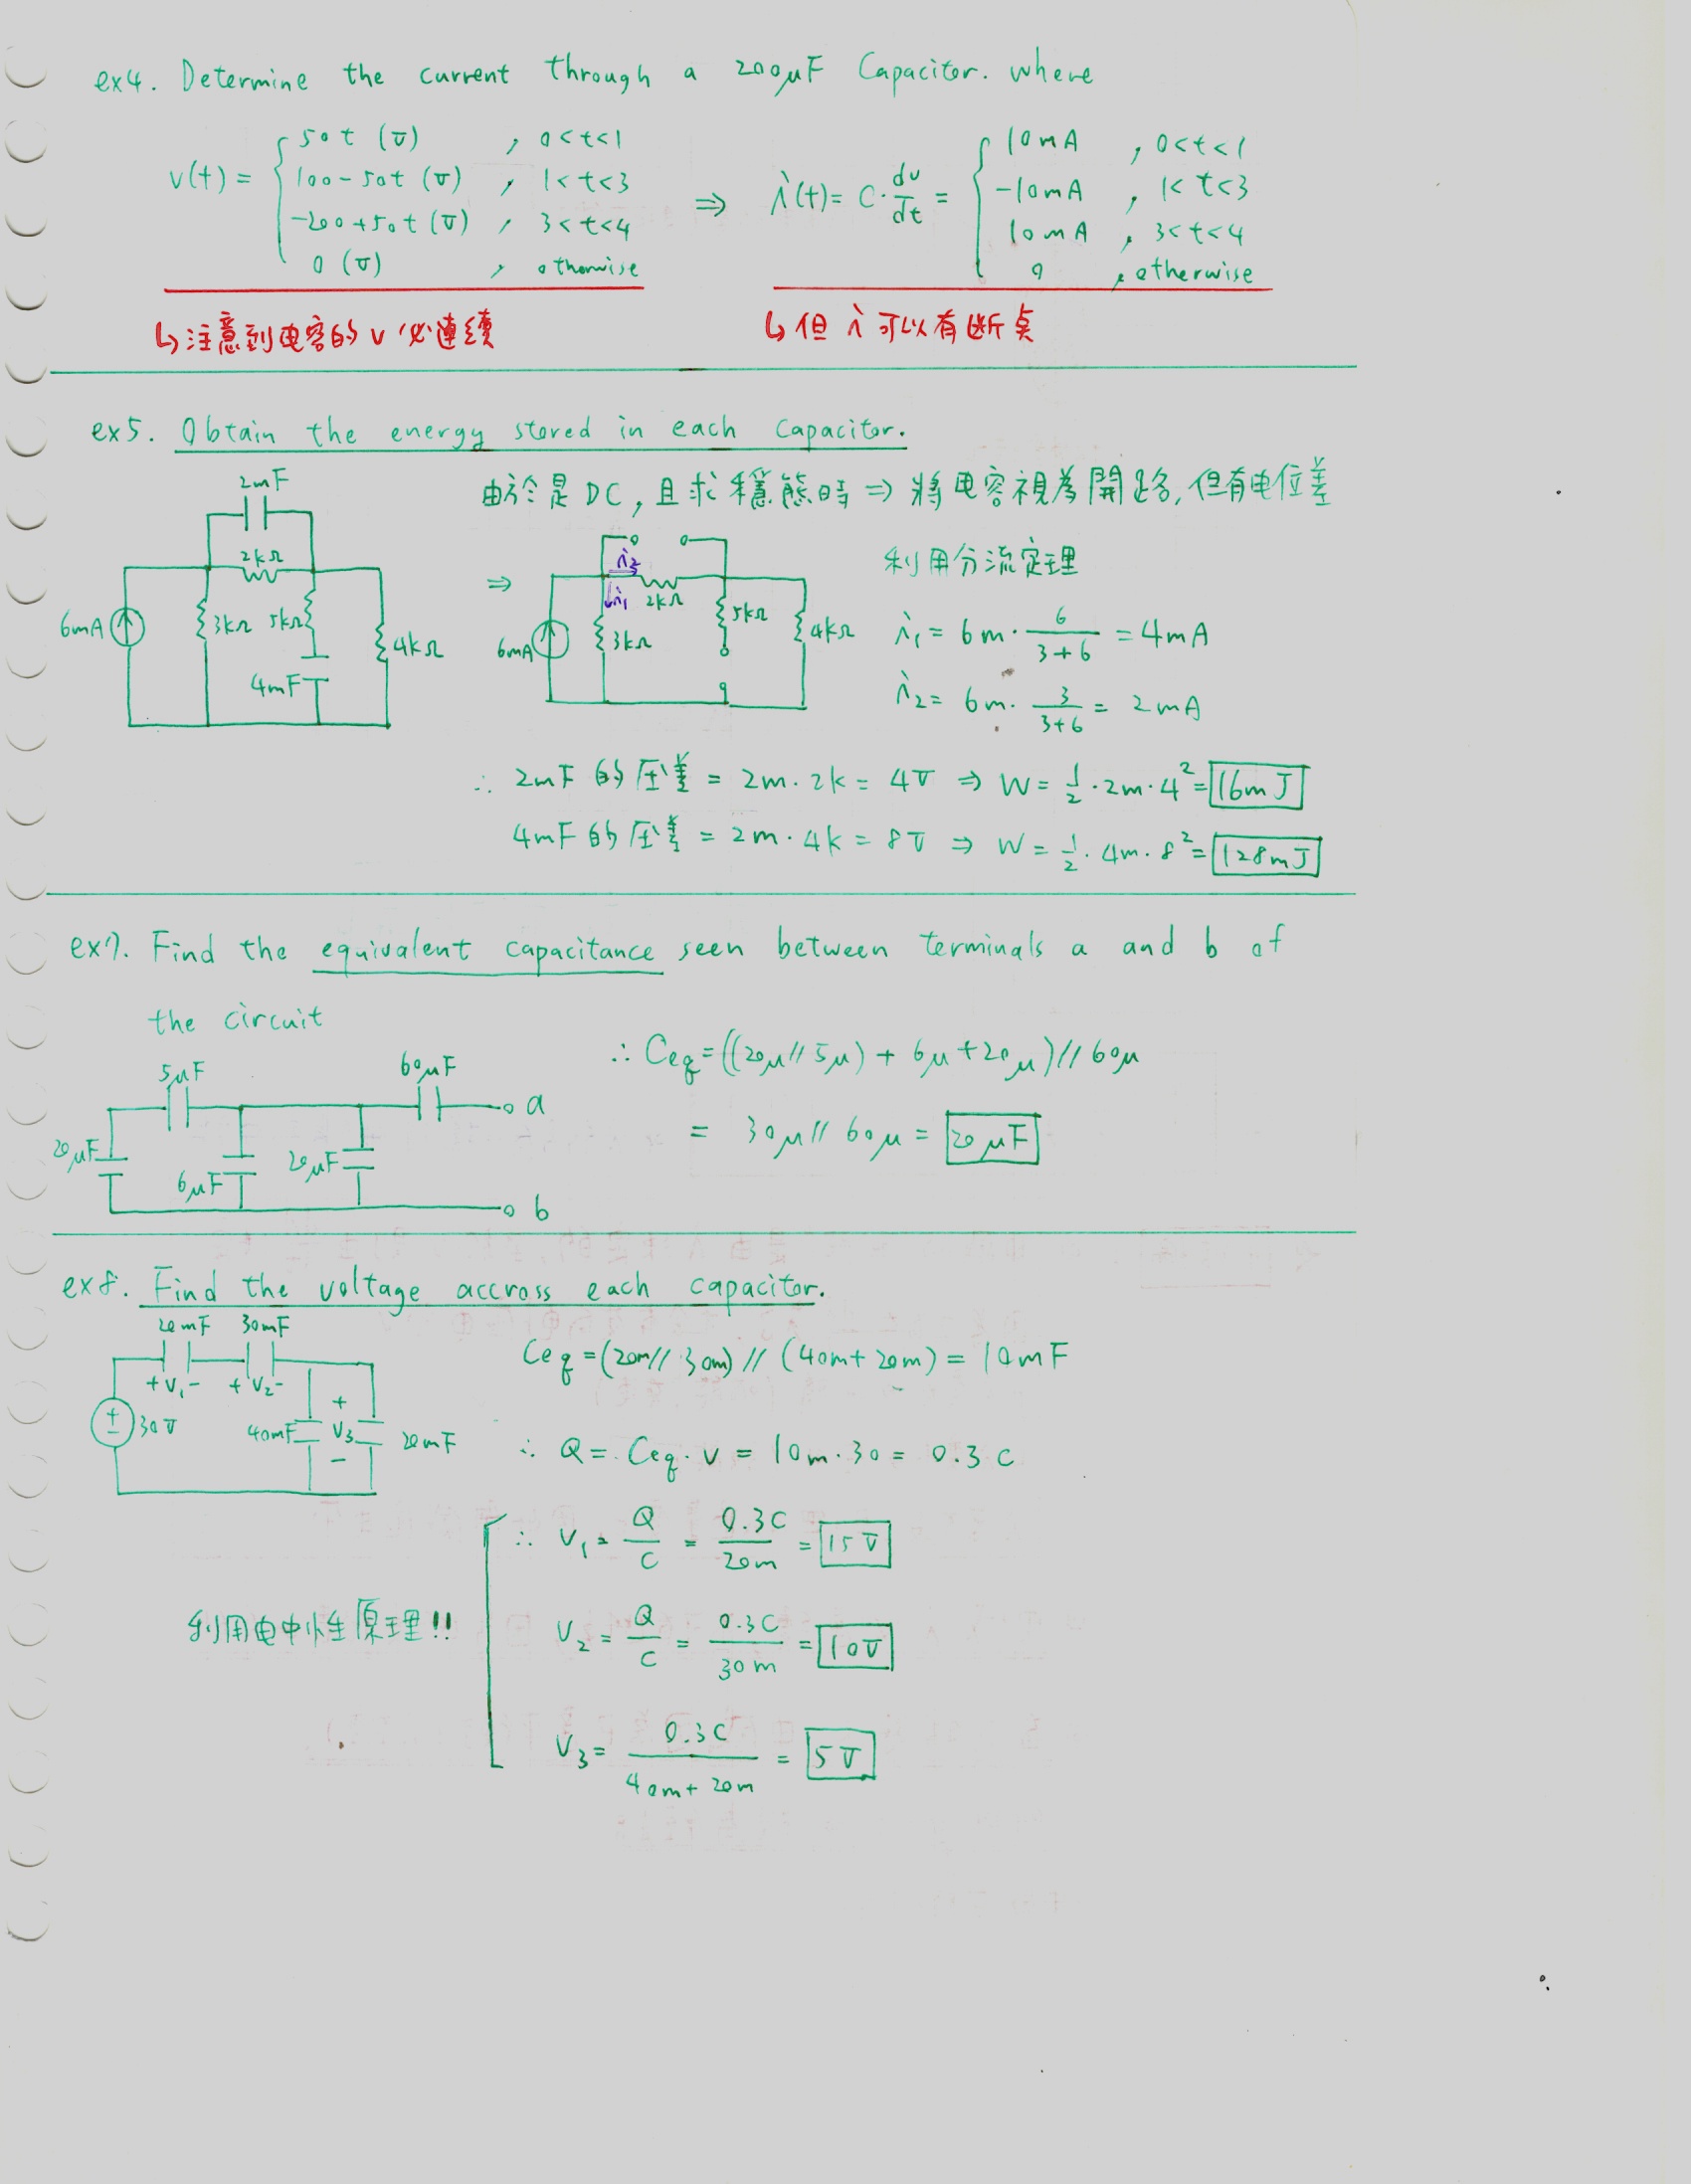 ex4. Determine the current through a 200μF Capacitor. where
v(t) = { 50t (V) , 0<t<1
100-50t (V) , 1<t<3
-200+50t (V) , 3<t<4
0 (V) , otherwise
⇒ i(t) = C · dv/dt = { 10mA , 0<t<1
-10mA , 1<t<3
10mA , 3<t<4
0 , otherwise
↳ 注意到电容的 v 必連續
↳ 但 i 可以有斷点
ex5. Obtain the energy stored in each capacitor.
由於是 DC, 且求穩態時 ⇒ 將电容視為開路, 但有电位差
2mF
2kΩ
6mA
3kΩ
5kΩ
4kΩ
4mF
⇒
i2
i1
2kΩ
6mA
3kΩ
5kΩ
4kΩ
利用分流定理
i1 = 6m · 6/(3+6) = 4mA
i2 = 6m · 3/(3+6) = 2mA
∴ 2mF 的压差 = 2m · 2k = 4V ⇒ W = 1/2 · 2m · 4² = 16mJ
4mF 的压差 = 2m · 4k = 8V ⇒ W = 1/2 · 4m · 8² = 128mJ
ex7. Find the equivalent capacitance seen between terminals a and b of
the circuit
5μF
60μF
a
20μF
6μF
20μF
b
∴ Ceq = ((20μ // 5μ) + 6μ + 20μ) // 60μ
= 30μ // 60μ = 20μF
ex8. Find the voltage accross each capacitor.
20mF 30mF
+ V1 - + V2 -
+
30V
40mF
V3
20mF
-
Ceq = (20m // 30m) // (40m + 20m) = 10mF
∴ Q = Ceq · v = 10m · 30 = 0.3 C
利用电中性原理!!
∴ V1 = Q/C = 0.3C/20m = 15V
V2 = Q/C = 0.3C/30m = 10V
V3 = 0.3C/(40m + 20m) = 5V